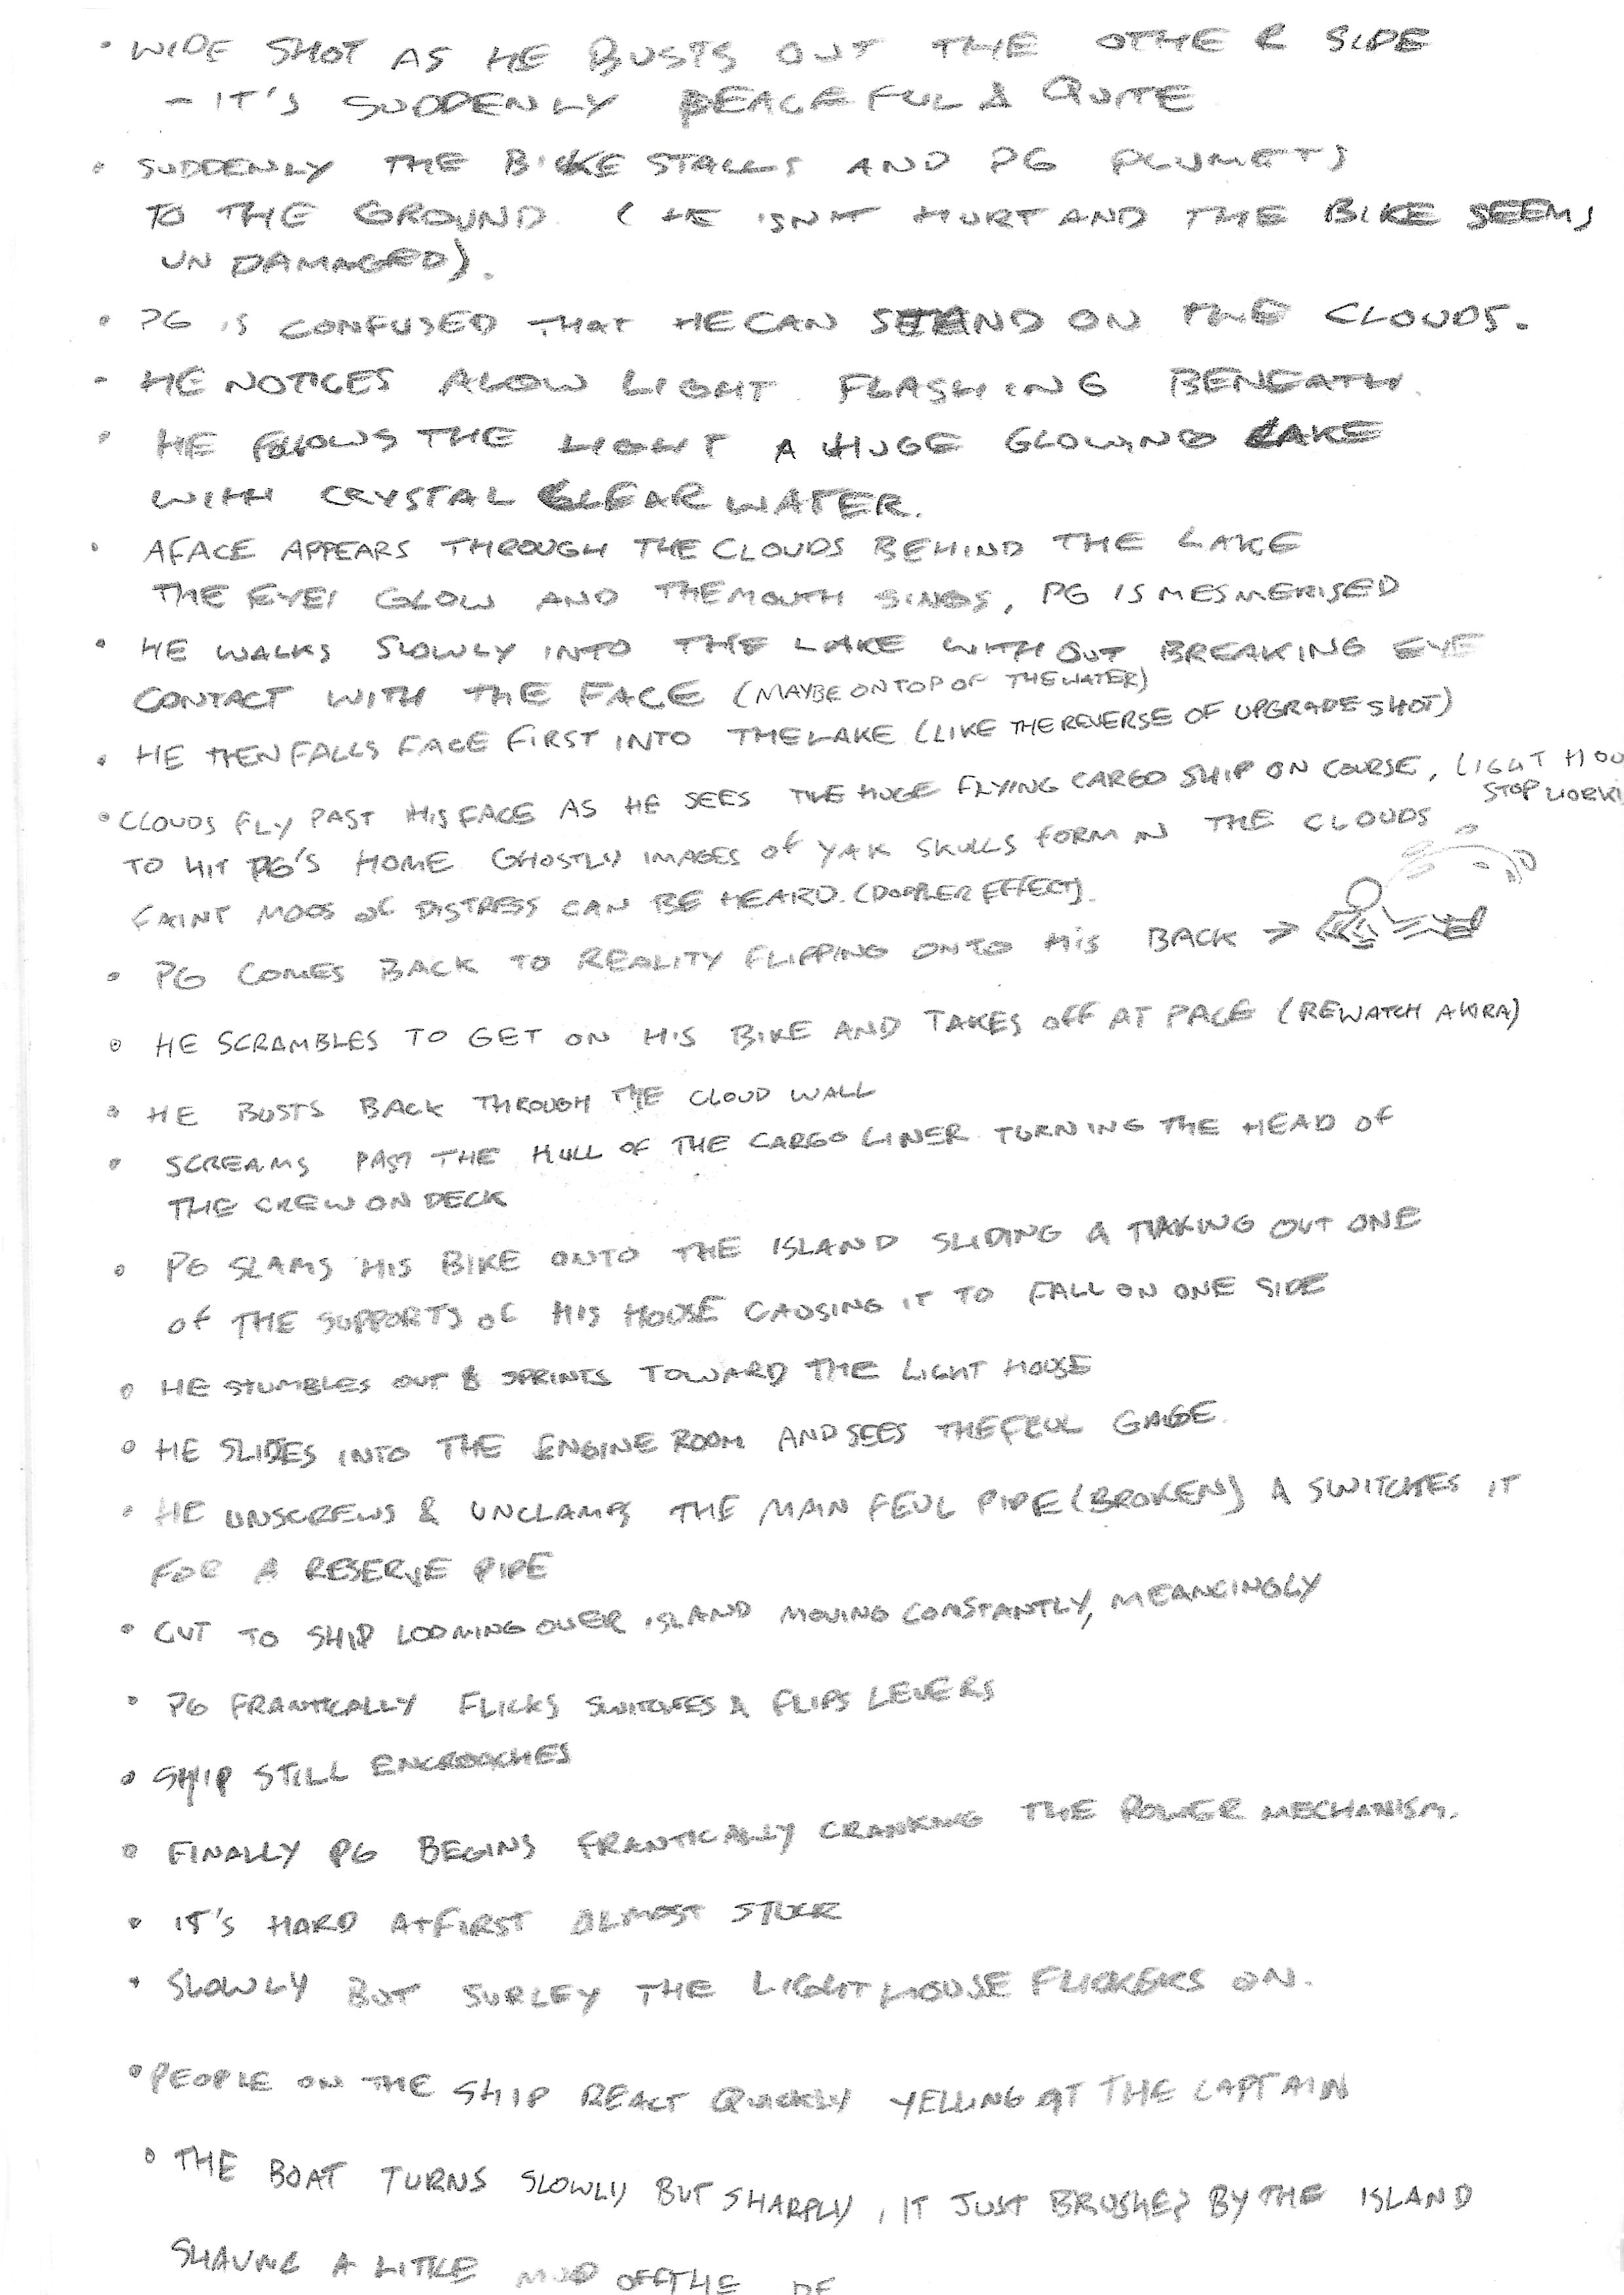 • WIDE SHOT AS HE BUSTS OUT THE OTHER SIDE
- IT'S SUDDENLY PEACEFUL & QUITE
• SUDDENLY THE BIKE STALLS AND PG PLUMETS
TO THE GROUND. (HE ISNT HURT AND THE BIKE SEEMS
UNDAMAGED).
• PG IS CONFUSED THAT HE CAN STAND ON THE CLOUDS.
- HE NOTICES A LOW LIGHT FLASHING BENEATH.
• HE FOLLOWS THE LIGHT A HUGE GLOWING LAKE
WITH CRYSTAL CLEAR WATER.
• A FACE APPEARS THROUGH THE CLOUDS BEHIND THE LAKE
THE EYES GLOW AND THE MOUTH SINGS, PG IS MESMERISED
• HE WALKS SLOWLY INTO THE LAKE WITHOUT BREAKING EYE
CONTACT WITH THE FACE (MAYBE ON TOP OF THE WATER)
• HE THEN FALLS FACE FIRST INTO THE LAKE (LIKE THE REVERSE OF UPGRADE SHOT)
• CLOUDS FLY PAST HIS FACE AS HE SEES THE HUGE FLYING CARGO SHIP ON COURSE, LIGHT HOU
STOP WORKI
TO HIT PG'S HOME GHOSTLY IMAGES OF YAK SKULLS FORM IN THE CLOUDS
FAINT MOOS OF DISTRESS CAN BE HEARD. (DOPPLER EFFECT).
• PG COMES BACK TO REALITY FLIPPING ONTO HIS BACK →
• HE SCRAMBLES TO GET ON HIS BIKE AND TAKES OFF AT PACE (REWATCH AKIRA)
• HE BUSTS BACK THROUGH THE CLOUD WALL
• SCREAMS PAST THE HULL OF THE CARGO LINER TURNING THE HEAD OF
THE CREW ON DECK
• PG SLAMS HIS BIKE ONTO THE ISLAND SLIDING & TAKING OUT ONE
OF THE SUPPORTS OF HIS HOUSE CAUSING IT TO FALL ON ONE SIDE
• HE STUMBLES OUT & SPRINTS TOWARD THE LIGHT HOUSE
• HE SLIDES INTO THE ENGINE ROOM AND SEES THE FEUL GAGE.
• HE UNSCREWS & UNCLAMPS THE MAIN FEUL PIPE (BROKEN) & SWITCHES IT
FOR A RESERVE PIPE
• CUT TO SHIP LOOMING OVER ISLAND MOVING CONSTANTLY, MEANCINGLY
• PG FRANTICALLY FLICKS SWITCHES & FLIPS LEVERS
• SHIP STILL ENCROACHES
• FINALLY PG BEGINS FRANTICALLY CRANKING THE POWER MECHANISM.
• IT'S HARD AT FIRST ALMOST STUCK
• SLOWLY BUT SURLEY THE LIGHT HOUSE FLICKERS ON.
• PEOPLE ON THE SHIP REACT QUICKLY YELLING AT THE CAPTAIN
• THE BOAT TURNS SLOWLY BUT SHARPLY, IT JUST BRUSHES BY THE ISLAND
SHAVING A LITTLE MUD OFF THE